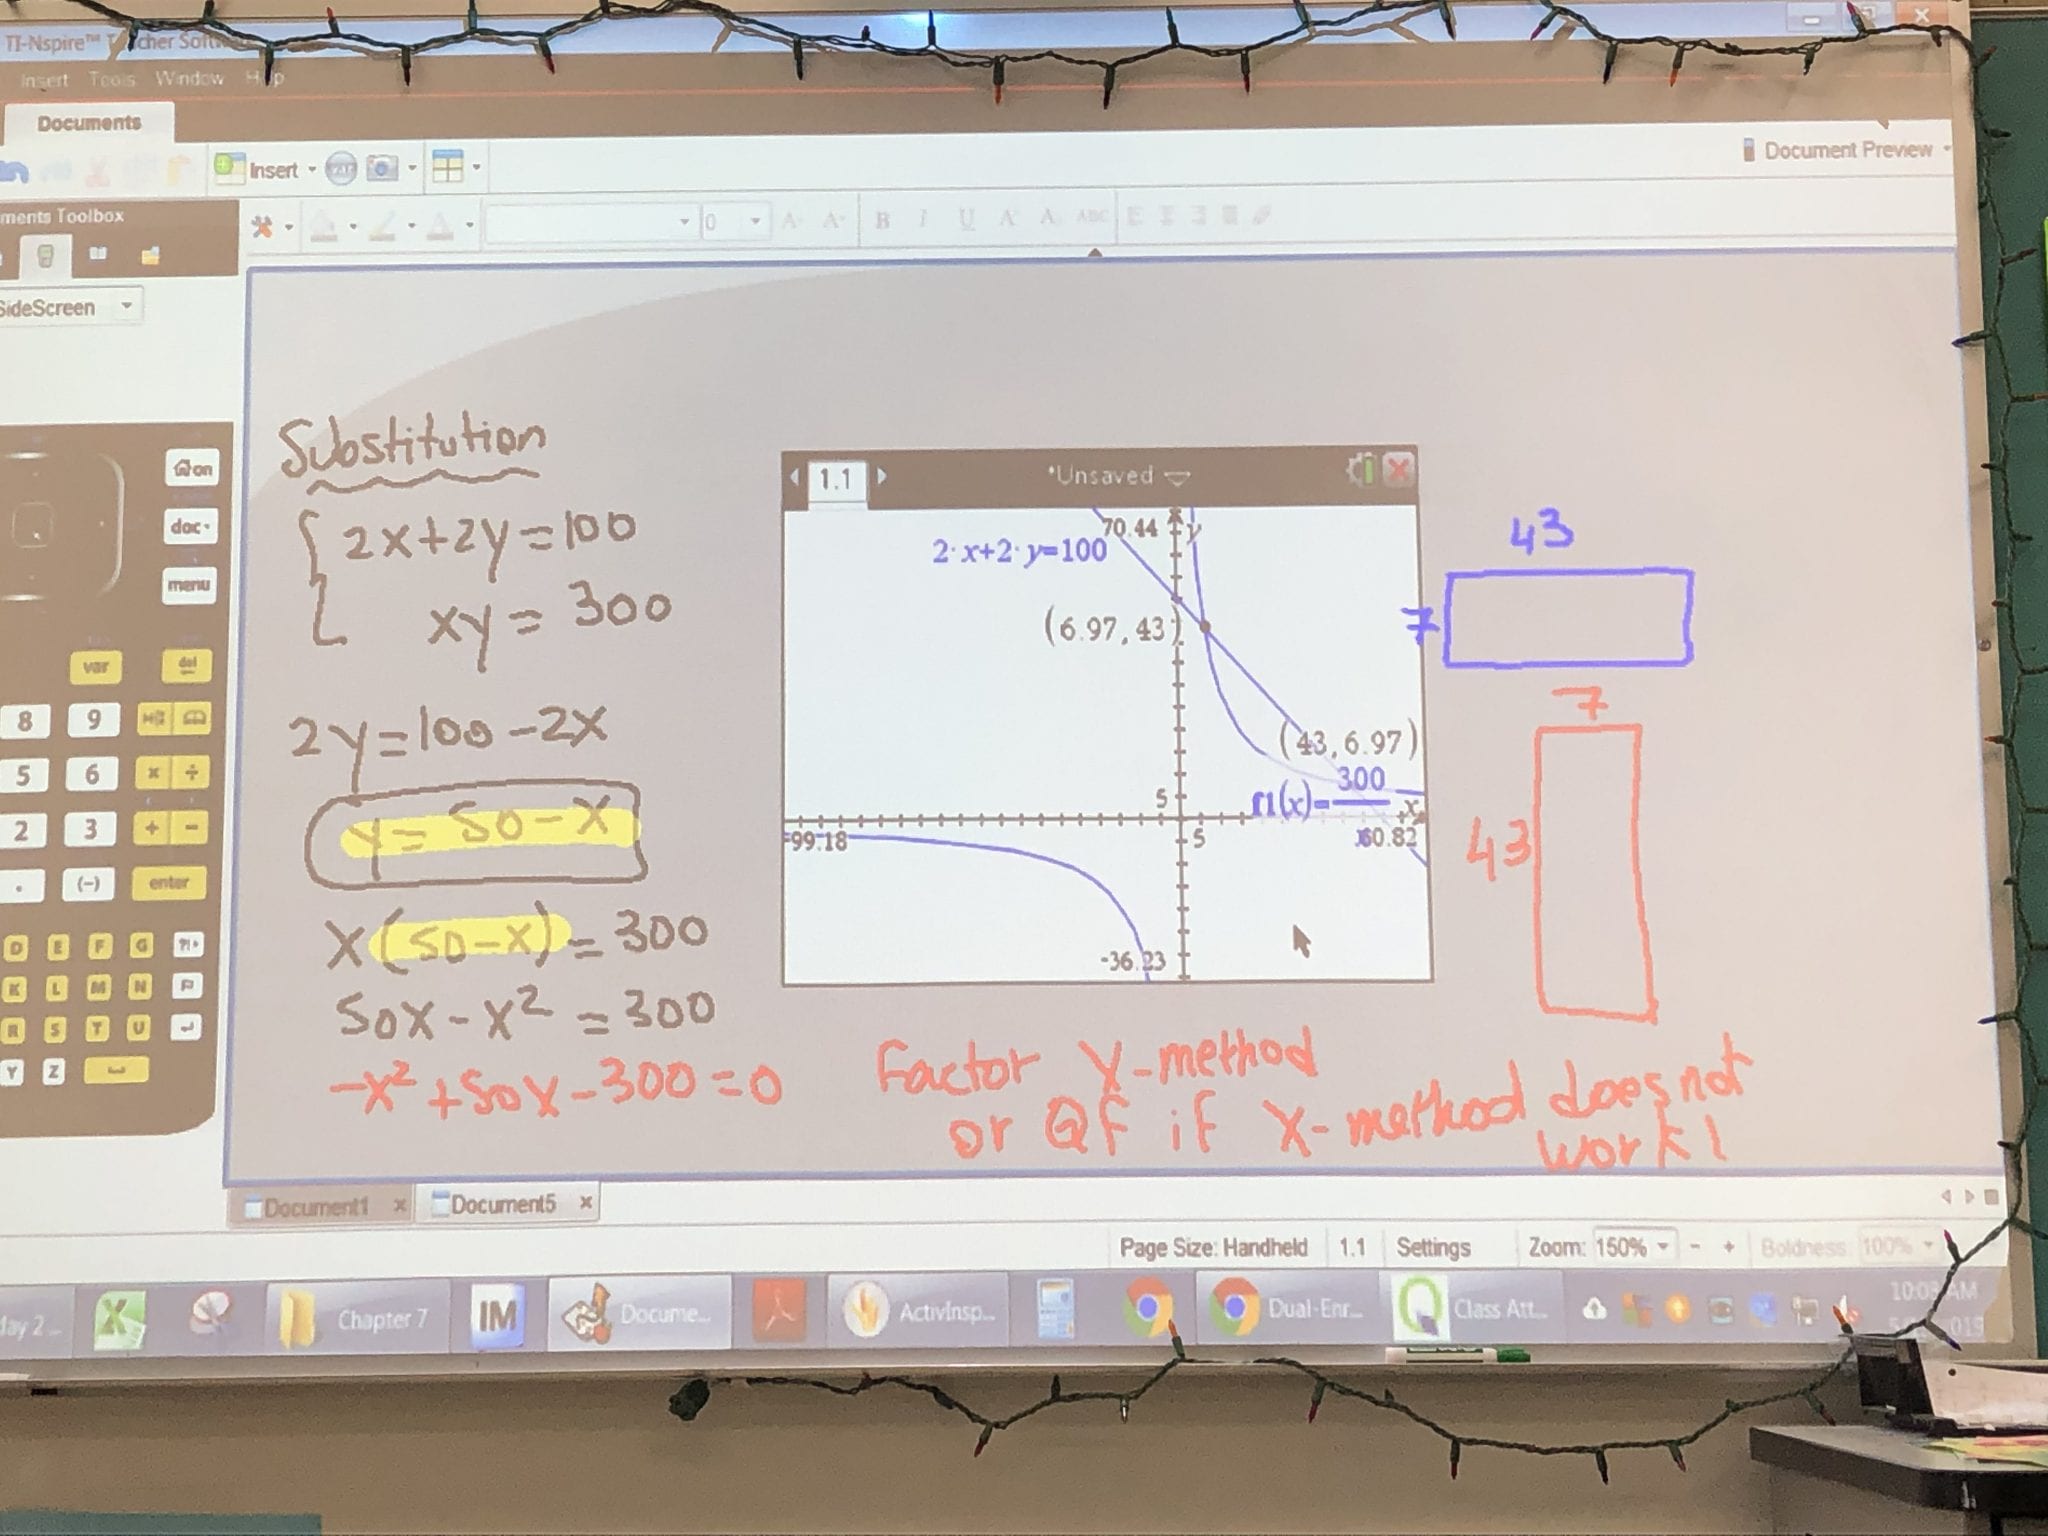 TI-Nspire™
Insert Tools Window
Documents
Insert
Document Preview
0 B I U ABC
SideScreen
on
doc
menu
var del
8 9
5 6 × ÷
2 3 + −
. (−) enter
D E F G ?!
K L M N
R S T U
Y Z
Substitution
2x+2y=100
xy=300
2y=100-2x
y=50-x
x(50-x)=300
50x-x²=300
-x²+50x-300=0
1.1 *Unsaved
70.44 y
2·x+2·y=100
(6.97,43)
(43,6.97)
f1(x)=300/x
5 x
-99.18 5 60.82
-36.23
43
7
7
43
Factor X-method
or QF if X-method does not
work!
Document1 x Document5 x
Page Size: Handheld 1.1 Settings Zoom: 150% - + Boldness: 100%
Chapter 7 IM Docume... ActivInsp... Dual-Enr... Class Att...